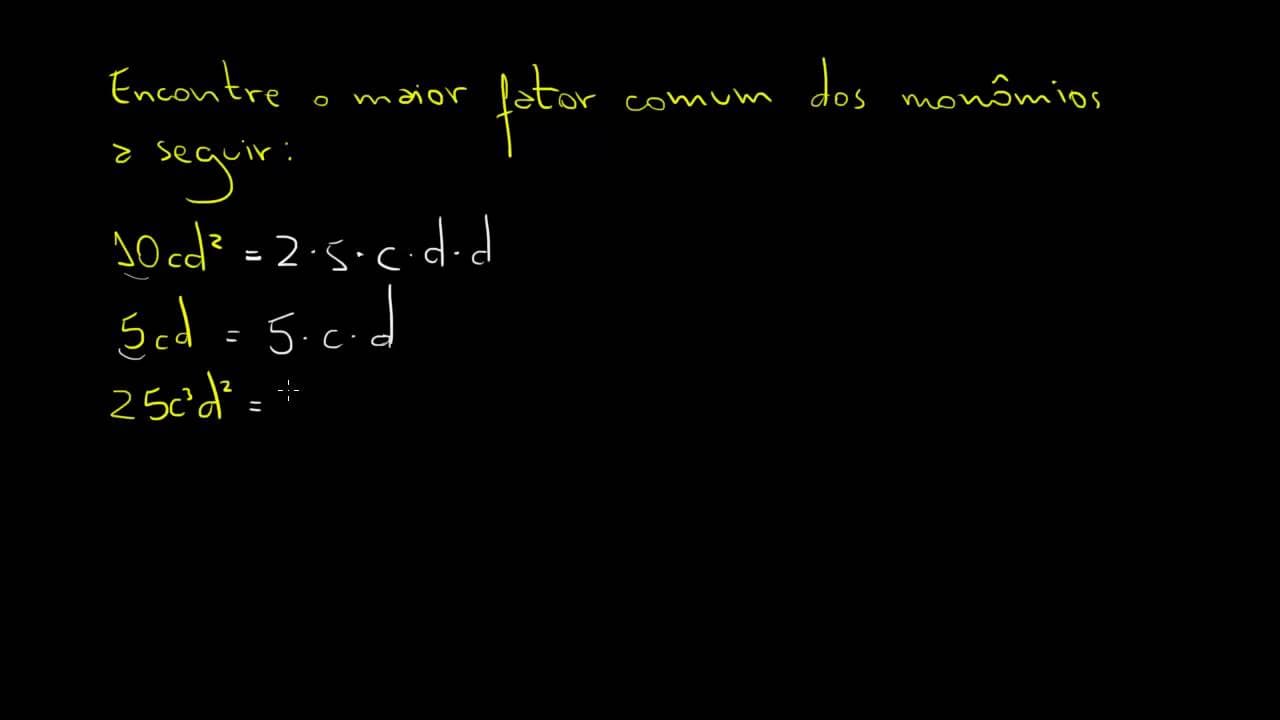 Encontre o maior fator comum dos monômios
a seguir:
10cd² = 2·5·c·d·d
5cd = 5·c·d
25c³d² =